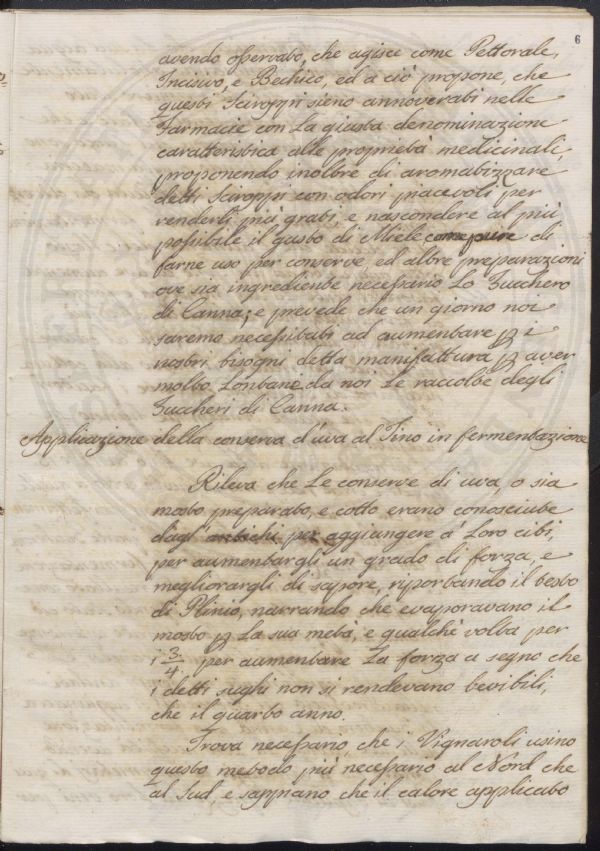 6
avendo osservato, che agisce come Pettorale,
Incisivo, e Bechico, ed a ciò propone, che
questi Sciroppi sieno annoverati nelle
Farmacie con la giusta denominazione
caratteristica alle proprietà medicinali,
proponendo inoltre di aromatizzare
detti Sciroppi con odori piacevoli per
renderli più grati, e nascondere al più
possibile il gusto di Miele come pure di
farne uso per conserve, ed altre preparazioni
ove sia ingrediente necessario lo Zucchero
di Canna; e prevede che un giorno noi
saremo necessitati ad aumentare p i
nostri bisogni detta manifattura p aver
molto lontane da noi le raccolte degli
Zuccheri di Canna.
Applicazione della conserva d'uva al Tino in fermentazione
Rileva che le conserve di uva, o sia
mosto preparato, e cotto erano conosciute
dagl' antichi per aggiungere a' loro cibi,
per aumentargli un grado di forza, e
megliorargli di sapore, riportando il testo
di Plinio, narrando che evaporavano il
mosto p la sua metà, e qualche volta per
i 3/4 per aumentare la forza a segno che
i detti sughi non si rendevano bevibili,
che il quarto anno.
Trova necessario che i Vignaroli usino
questo metodo più necessario al Nord che
al Sud, e sappiano che il calore applicato